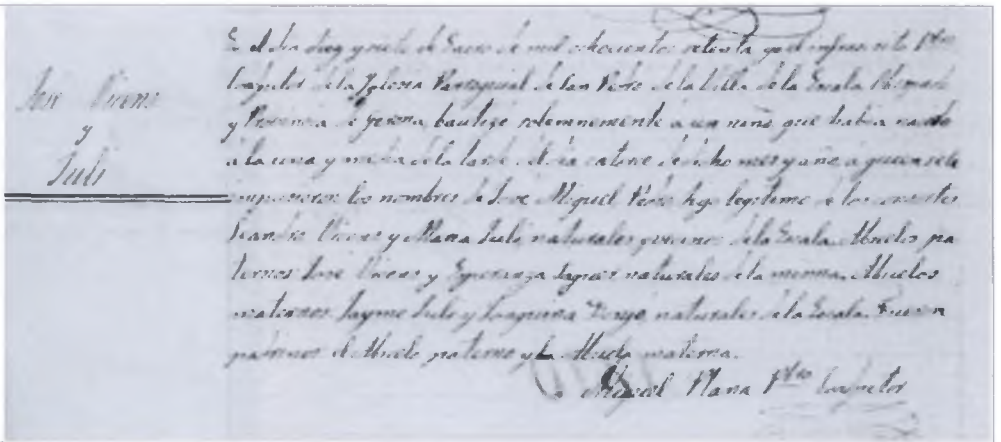 José Vicens
y
Juli
En el dia diez y siete de Enero de mil ochocientos setenta yo el infrascrito Pbro
de la Iglesia Parroquial de San Pedro de la Villa de la Escala Obispado
y Provincia de Gerona, bautizé solemnemente á un niño que habia nacido
á la una y media de la tarde del dia catorce de dicho mes y año á quien se le
impusieron los nombres de José Miguel Pedro hijo legitimo de los consortes
Vicens y Maria Juli naturales y vecinos de la Escala. Abuelos pa
ternos José Vicens y Esperanza naturales de la misma. Abuelos
maternos Jayme Juli y Joaquina naturales de la Escala. Fueron
padrinos el Abuelo paterno y la Abuela materna.
Miguel Plana Pbro